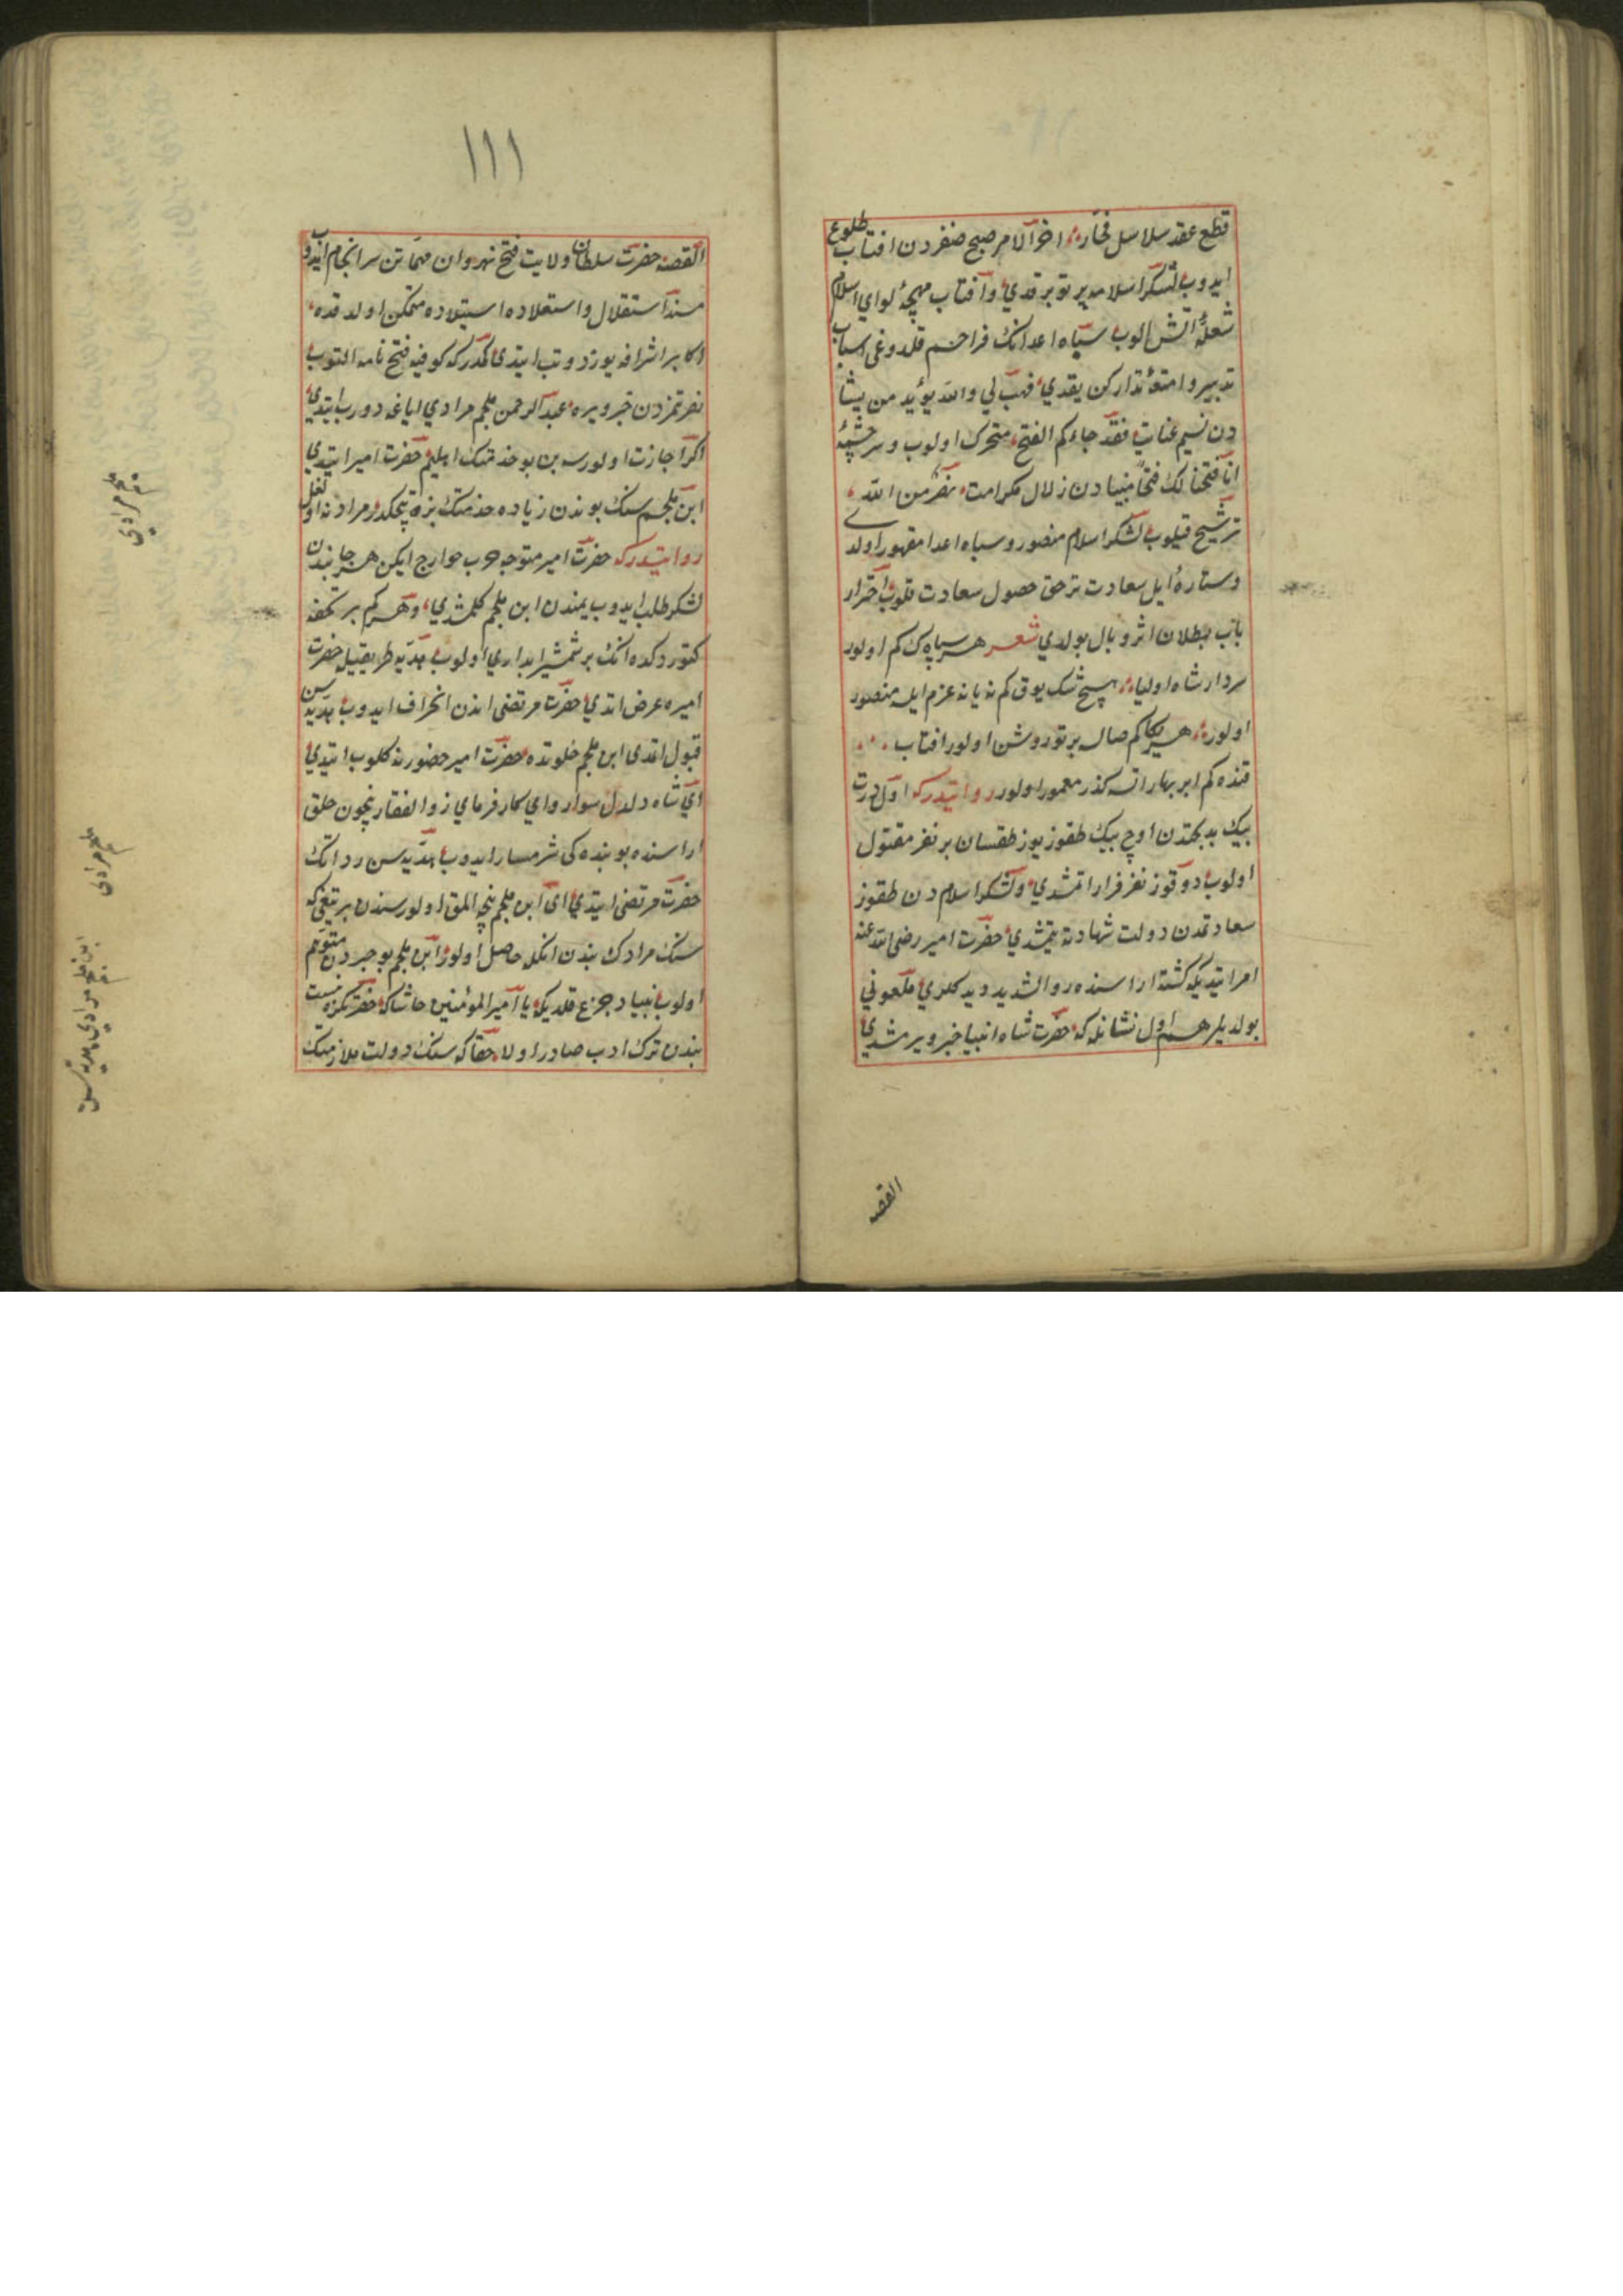 قطع عقد سلاسل فجار اخر الامر صبح ظفردن افتاب طلوع
ايدوب لشكر اسلامه پرتو برقدي وافتاب مهچهٔ لواي اسلام
شعلهٔ اتش الوب سپاه اعدانك فراحم قلدوغى اسباب
تدبير وامتعهٔ تداركن يقدي فهب لي والله يؤيد من يشا
دن نسيم عنايت فقد جاءكم الفتح متحرك اولوب وسرچشمهٔ
انا فتحنا لك فتحا مبينا دن زلال مكرامت نصر من الله
ترشيح قيلوب لشكر اسلام منصور وسپاه اعدا مقهور اولدي
وستارهٔ ايل سعادت ترحق حصول سعادت قلوب احتراز
باب بطلان اثر وبال بولدي شعر هر سپاهك كم اولور
سردار شاه اوليا هيچ شك يوق كم نه يانه عزم ايله منصور
اولور هر يكا كم صاله پرتو روشن اولور افتاب
قنده كم ابر بهار اتسه كذر معمور اولور روايتدركه اول درت
بيك بدبختدن اوچ بيك طقوز يوز طقسان بر نفر مقتول
اولوب دوقوز نفر فرار اتمشدي ولشكر اسلام دن طقوز
سعادتمدن دولت شهادته يتمشدي حضرت امير رضى الله عنه
امر ايتديكه كشته اراسنده ذو الثديه ديدكلري ملعوني
بولديلر هم اول نشانله كه حضرت شاه انبيا خبر ويرمشدي
القصه
١١١
القصه حضرت سلطان ولايت فتح نهروان مهماتن سرانجام ايدوب
مسند استقلال واستعلاده استيلاده متمكن اولدقده
اكابر اشرافه يوز دوتب ايتدى كمدركه كوفيه فتح نامه التوب
نصرتمزدن خبر ويره عبد الرحمن ملجم مرادي اياغه دورب ايتدي
اكر اجازت اولورسه بن بو خدمتك ايليم حضرت امير ايتدي
ابن ملجم سنك بوندن زياده خدمتك بزه يتجكدر مرادنه اول
روايتدركه حضرت امير متوجه حرب خوارج ايكن هر جانبدن
لشكر طلب ايدوب يمندن ابن ملجم كلمشدي وهر كم بر تحفه
كتوردكده انك بر شمشير ابداري اولوب هديه طريقيله حضرت
اميره عرض اتدي حضرت مرتضى اندن انحراف ايدوب هديه سن
قبول اتمدى ابن ملجم خلوتده حضرت امير حضورنه كلوب ايتدي
اي شاه دلدل سوار واي كارفرماي ذو الفقار نيچون خلق
اراسنده بو بنده كى شرمسار ايدوب هديه سن رد اتك
حضرت مرتضى ايتدي اى ابن ملجم نيجه المق اولور سندن بر تيغى كه
سنك مرادك بندن انكله حاصل اولور ابن ملجم بو خبردن متوهم
اولوب بنياد جزع قلديكه يا امير المؤمنين حاشا كه حضرتكزه نسبت
بندن ترك ادب صادر اولا حقا كه سنك دولت ملازمتك
ملجم مرادي
ملجم مرادى
ابن ملجم مرادي هديه سى